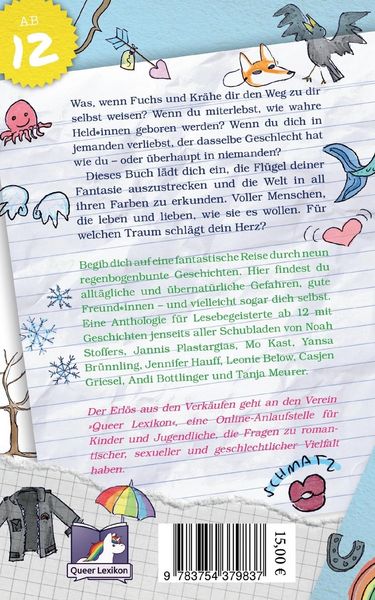 AB
12
Was, wenn Fuchs und Krähe dir den Weg zu dir
selbst weisen? Wenn du miterlebst, wie wahre
Held*innen geboren werden? Wenn du dich in
jemanden verliebst, der dasselbe Geschlecht hat
wie du – oder überhaupt in niemanden?
Dieses Buch lädt dich ein, die Flügel deiner
Fantasie auszustrecken und die Welt in all
ihren Farben zu erkunden. Voller Menschen,
die leben und lieben, wie sie es wollen. Für
welchen Traum schlägt dein Herz?
Begib dich auf eine fantastische Reise durch neun
regenbogenbunte Geschichten. Hier findest du
alltägliche und übernatürliche Gefahren, gute
Freund*innen – und vielleicht sogar dich selbst.
Eine Anthologie für Lesebegeisterte ab 12 mit
Geschichten jenseits aller Schubladen von Noah
Stoffers, Jannis Plastargias, Mo Kast, Yansa
Brünnling, Jennifer Hauff, Leonie Below, Casjen
Griesel, Andi Bottlinger und Tanja Meurer.
Der Erlös aus den Verkäufen geht an den Verein
»Queer Lexikon«, eine Online-Anlaufstelle für
Kinder und Jugendliche, die Fragen zu roman-
tischer, sexueller und geschlechtlicher Vielfalt
haben.
SCHMATZ
Queer Lexikon
15,00 €
9 783754 379837